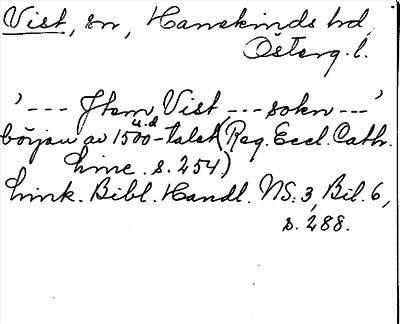 Vist, sn, Hanekinds hd,
Österg. l.
' --- Jtem Vist --- sokn --- '
u.d
början av 1500-talet (Reg. Eccl. Cath.
Linc. s. 254.)
Link. Bibl. Handl. NS. 3, Bil. 6,
s. 288.